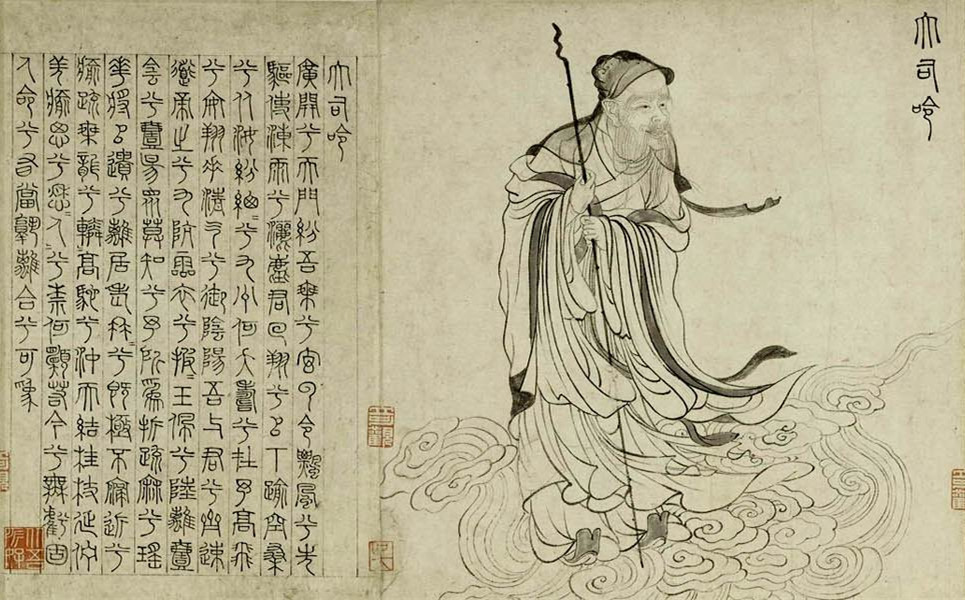 大司命
大司命
廣開兮天門紛吾乘兮玄雲令飄風兮先
驅使涷雨兮灑塵君回翔兮以下踰空桑
兮從女紛緫=兮九州何夭壽兮在予高飛
兮安翔乘清气兮御陰陽吾与君兮齊速
導帝之兮九阬靈衣兮披=玉佩兮陸離壹
陰兮壹昜眾莫知兮予所爲折疏麻兮瑤
華將以遺兮離居老冉=兮既極不寖近兮
瘉疏乘龍兮轔=高馳兮沖天結桂枝延佇
羌瘉思兮愁=人=兮柰何願若今兮無虧固
人命兮有當孰離合兮可爲